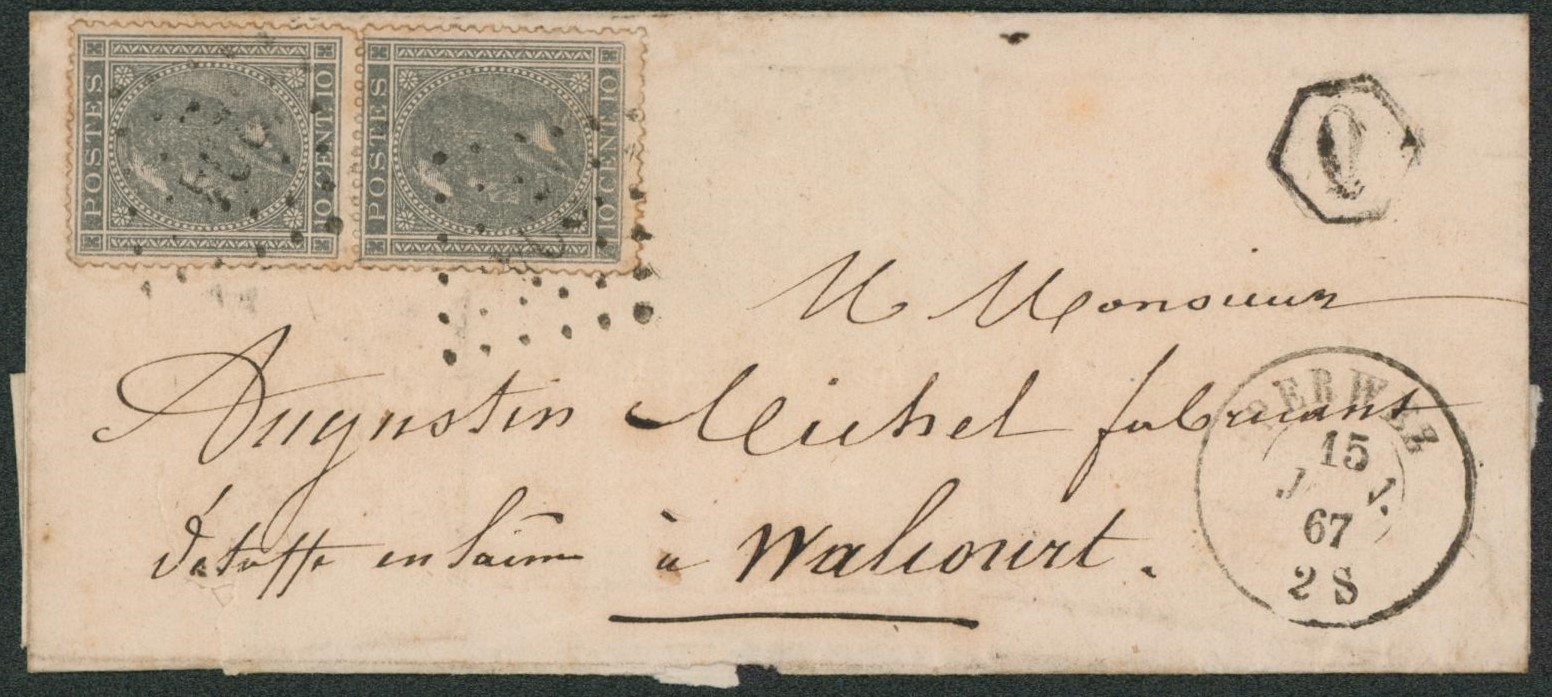 POSTES
10 CENT. 10
POSTES
10 CENT. 10
M Monsieur
Augustin Michel fabricant
d'étoffe en laine à Walcourt.
PERWEZ
15
67
2 S